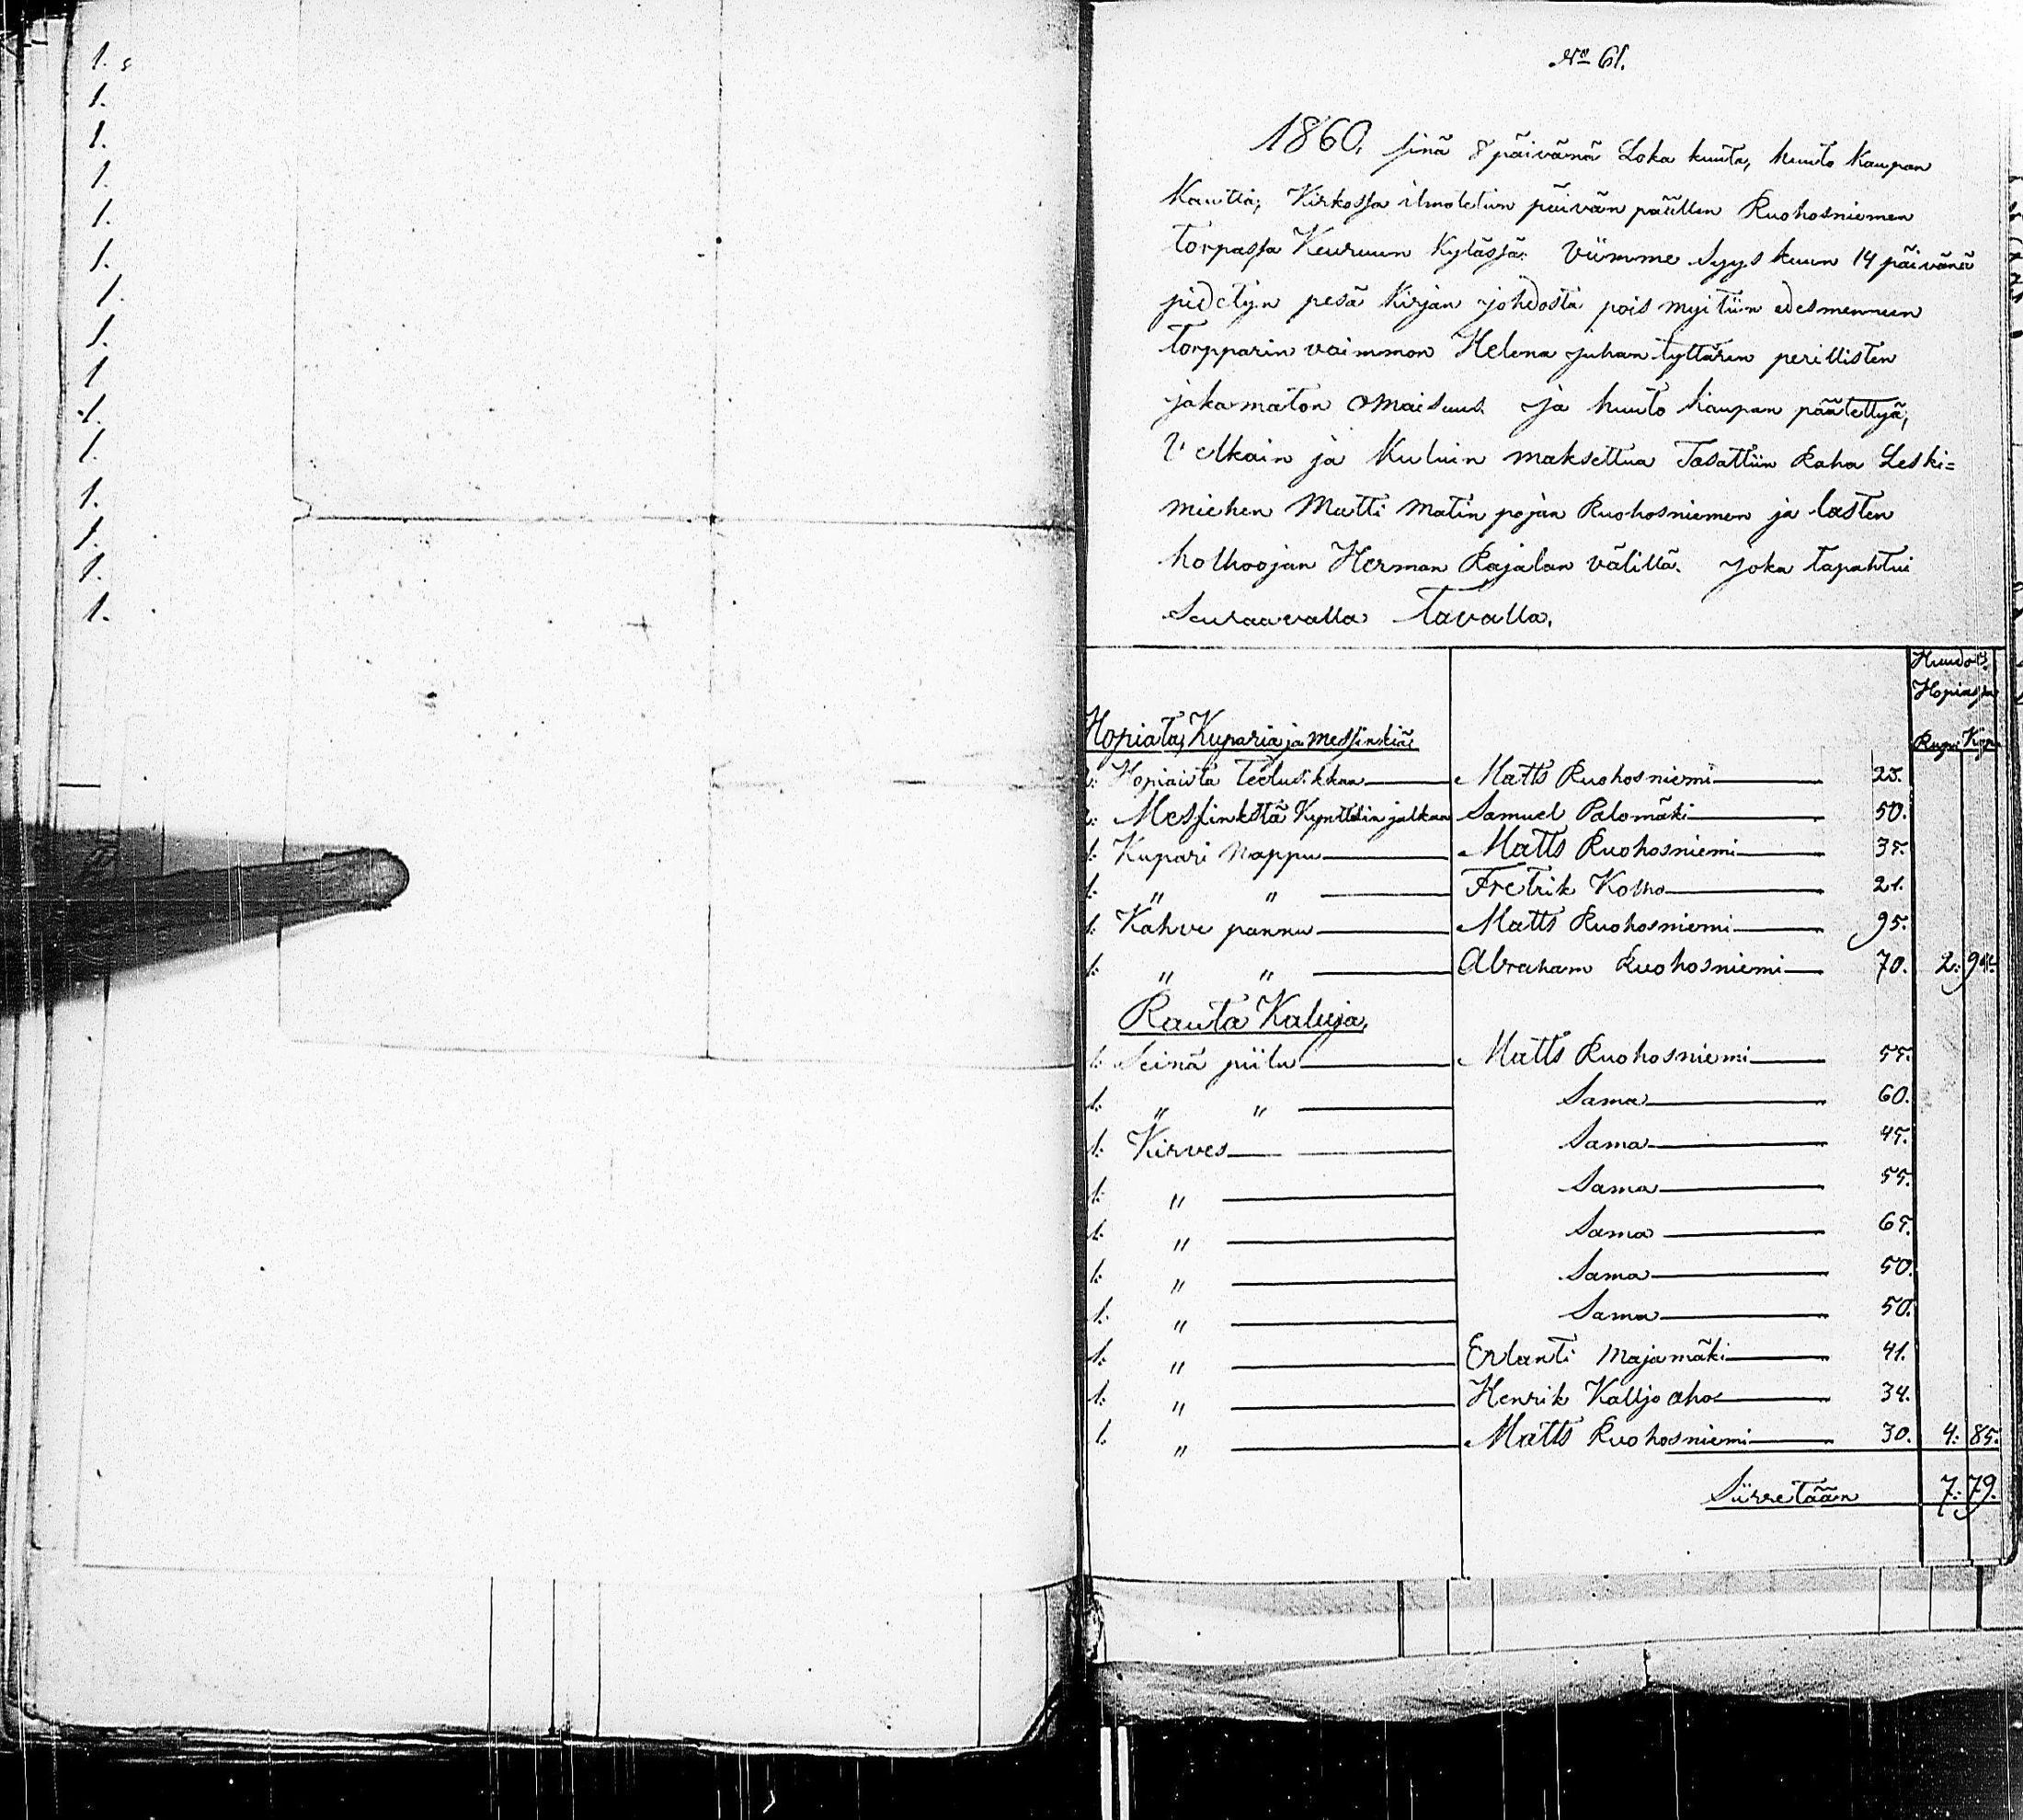 1.
1.
1.
1.
1.
1.
1.
1.
1
1.
1.
1.
1.
1.
1.
No 61.
1860. sinä 8 päivänä Loka kuuta, huuto Kaupan
Kautta; Kirkossa ilmoletiin päivän päällen Ruohosniemen
torpassa Keuruun Kylässä. Viimme Syys kuun 14 päivänä
pidetyn pesä Kirjan johdosta pois myitiin edesmenneen
Torpparin vaimmon Helena Juhan tyttären perillisten
jakamaton Omaisuus. ja huuto kaupan päätettyä,
Velkain ja Kuluin maksettua Tasattiin Raha Leski=
miehen Matti Matin pojan Ruohosniemen ja lasten
holhoojan Herman Rajalan välillä. Joka tapahtui
Seuraavalla Tavalla.
Hopiassa
Rupl Kop
Hopiata, Kuparia ja messinkiä,
Hopiaista Teelusikkaa Matts Ruohosniemi 23.
2: Messinkstä Kynttilin jalkaa Samuel Palomäki 50.
1: Kupari Nappu Matts Ruohosniemi 35.
1: " " Fretrik Kolho 21.
1: Kahve pannu Matts Ruohosniemi 95.
1: " " Abraham Ruohosniemi 70. 2: 94.
Rauta Kaluja,
1: Seinä piilu Matts Ruohosniemi 55.
1: " " Sama 60.
1: Kirves Sama 45.
1: " Sama 55.
1: " Sama 65.
1: " Sama 50.
1: " Sama 50.
1: " Erlanti Majamäki 41.
1: " Henrik Kalljo aho 34.
1. " Matts Ruohosniemi 30. 4: 85.
Siirretään 7: 79.